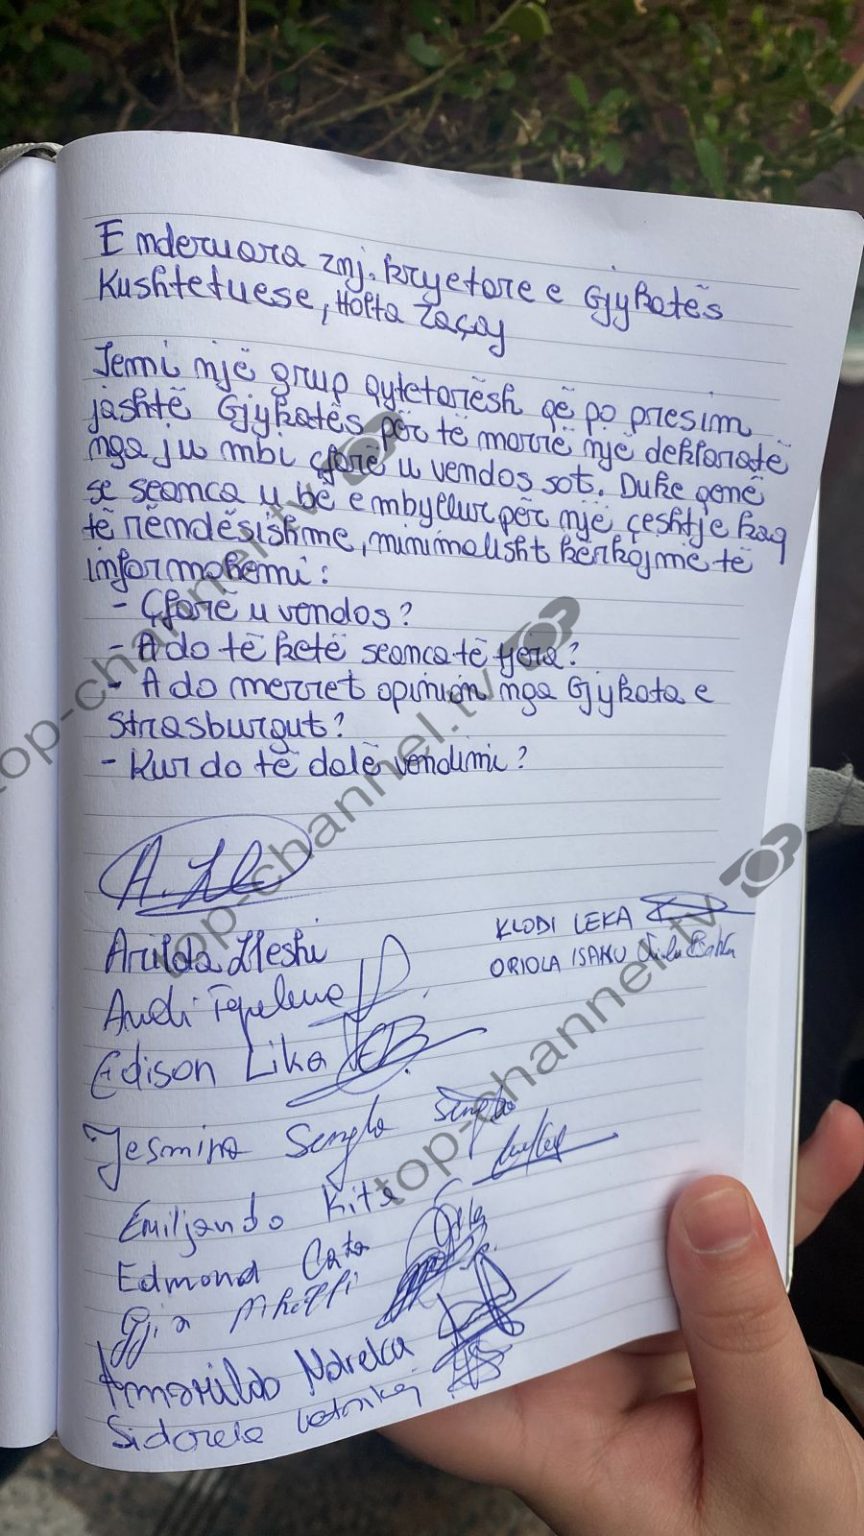 E nderuara znj. kryetore e Gjykatës
Kushtetuese, Holta Zaçaj
Jemi një grup qytetarësh që po presim
jashtë Gjykatës për të marrë një deklaratë
nga ju mbi çfarë u vendos sot. Duke qenë
se seanca u bë e mbyllur për një çeshtje kaq
të rëndësishme, minimalisht kërkojmë të
informohemi:
- Çfarë u vendos?
- A do të ketë seanca të tjera?
- A do merret opinion nga Gjykata e
Strasburgut?
- Kur do të dalë vendimi?
Arilda Lleshi
KLODI LEKA
ORIOLA ISAKU
Andi Tepelena
Edison Lika
Jesmina Sengla
Emiljando Kita
Edmond Cata
Gjin
Amarildo Ndreka
Sidorela
top-channel.tv
top-channel.tv
top-channel.tv